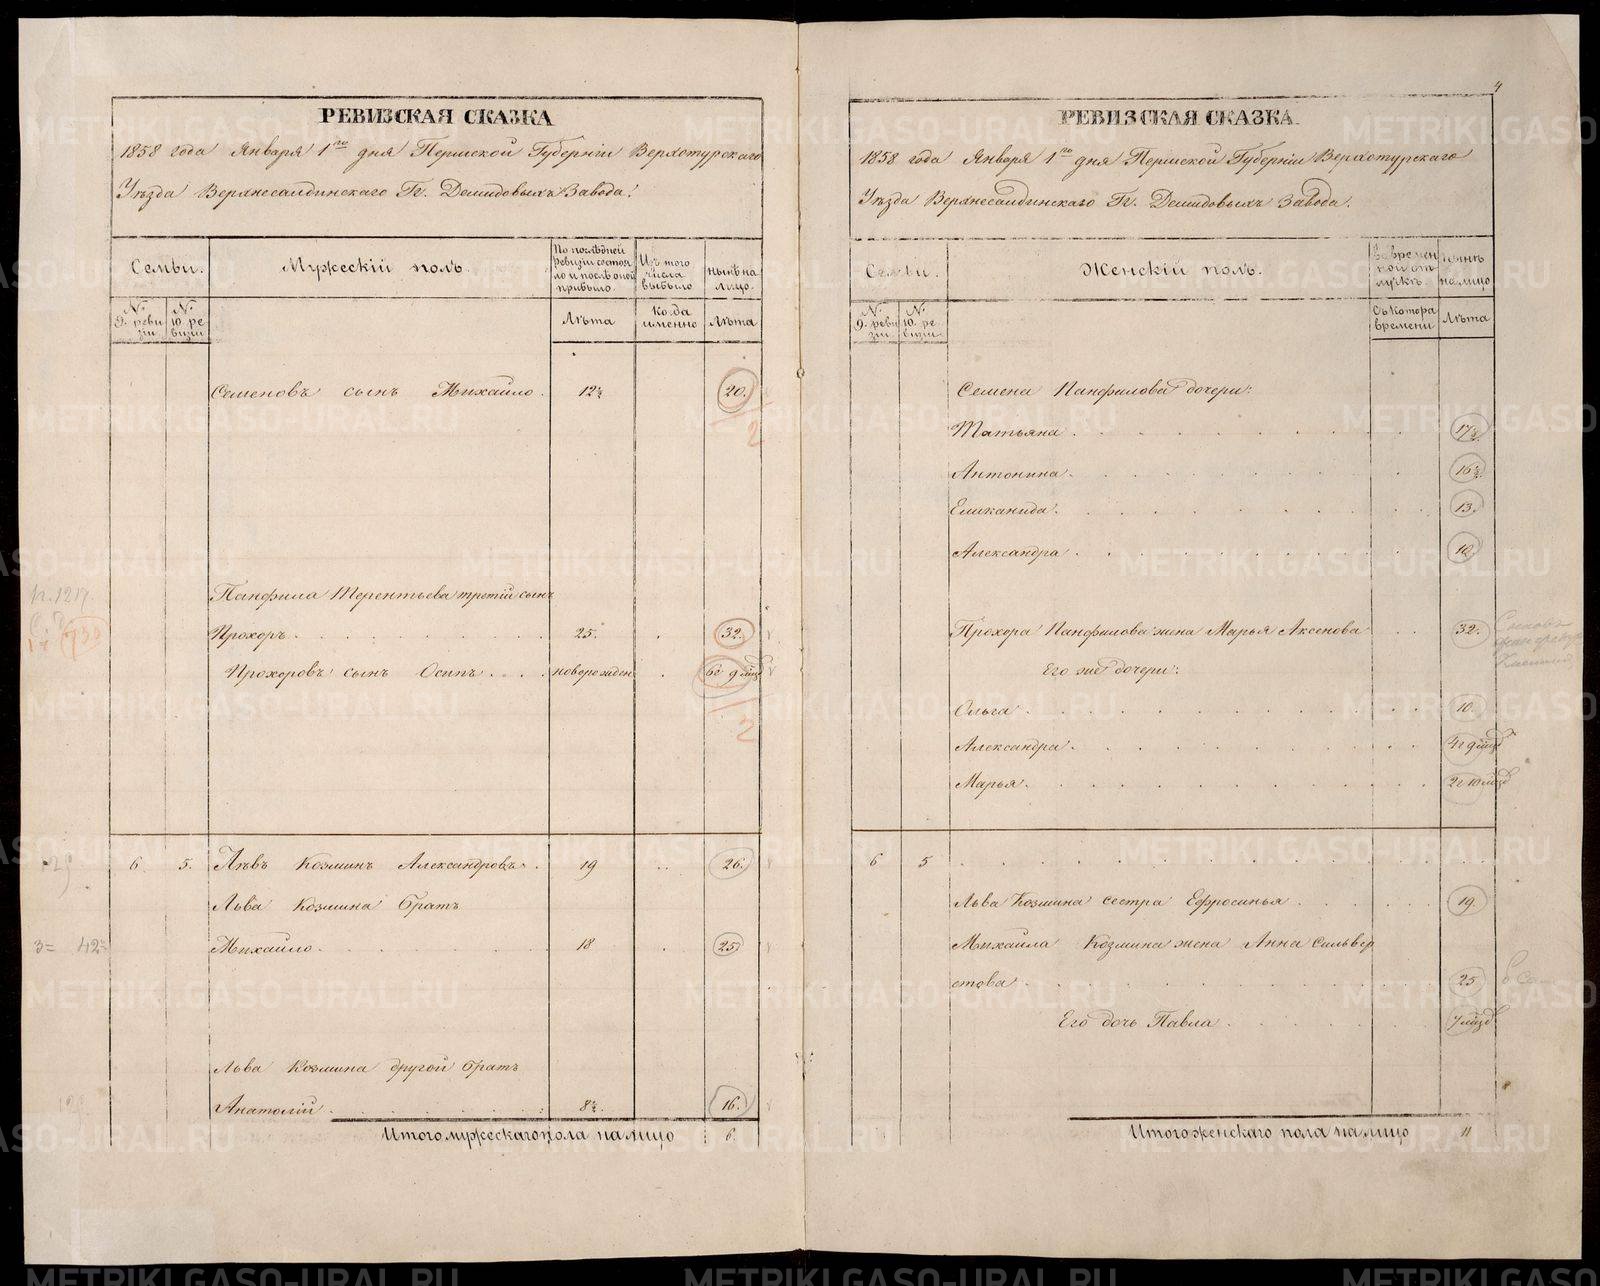 РЕВИЗСКАЯ СКАЗКА
1858 года Января 1го дня Пермской Губернiи Верхотурскаго
Уѣзда Верхнесалдинскаго Гг. Демидовыхъ Завода.
Семьи.
Мужескiй полъ.
По послѣдней ревизiи состояло и послѣ оной прибыло.
Изъ того числа выбыло
нынѣ на лицо.
№ 9. ревизiи.
№ 10. ревизiи.
Лѣта
Когда именно
Лѣта
Семеновъ сынъ Михайло. 12½ 20.
2
Панфила Терентьева третiй сынъ
Прохоръ. 25. 32.
Прохоровъ сынъ Осипъ новорожден 6г 9 мѣсд
2
6 5. Лѣвъ Козминъ Александровъ. 19 26.
Льва Козмина братъ
3= 42½ Михайло. 18 25
Льва Козмина другой братъ
Анатолiй. 8½ 16.
Итого мужескаго пола на лицо 6.
4
РЕВИЗСКАЯ СКАЗКА.
1858 года Января 1го дня Пермской Губернiи Верхотурскаго
Уѣзда Верхнесалдинскаго Гг. Демидовыхъ Завода.
Семьи.
Женскiй полъ.
Во временной отлучкѣ.
нынѣ на лицо
№ 9. ревизiи.
№ 10. ревизiи.
Съ котора времени
Лѣта
Семена Панфилова дочери:
Татьяна. 17½
Антонина. 16½
Еликанида. 13.
Александра. 10
Прохора Панфилова жена Марья Аксенова 32.
Его же дочери:
Ольга. 10.
Александра. 4г 9 мѣсд
Марья. 2г 10 мѣсд
6 5
Льва Козмина сестра Ефросинья 19.
Михайла Козмина жена Анна Сильвер
стова 25
Его дочь Павла. 7 мѣсд
Итого женскаго пола на лицо 11
METRIKI.GASO-URAL.RU